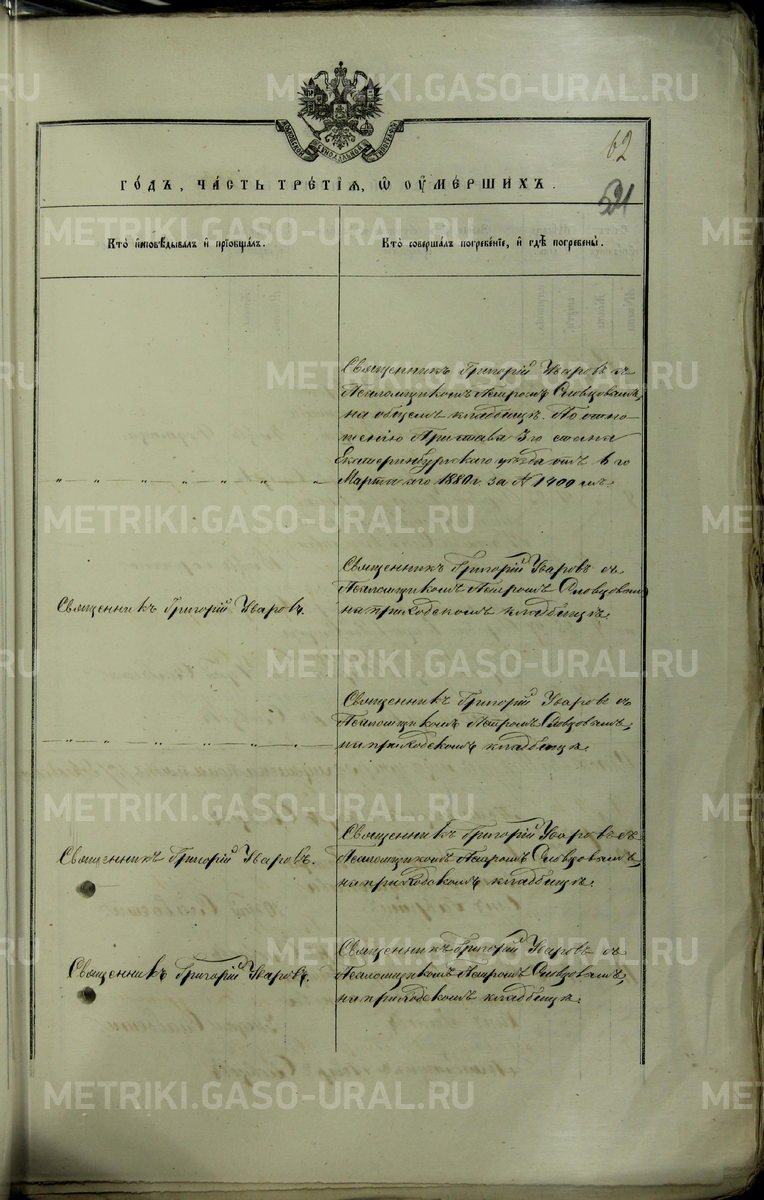 62
21
ГО́ДЪ, ЧА́СТЬ ТРЕ́ТІѦ, Ѡ ОУ҆МЕ́РШИХЪ.
Кто̀ и҆сповѣ́дывалъ и҆ прїобща́лъ.
Кто̀ соверша́лъ погребе́нїе, и҆ гдѣ̀ погребены̀.
Священникъ Григорій Уваровъ съ
Псаломщикомъ Петромъ Словцовымъ,
на общемъ кладбищѣ. По отно-
шенію Пристава 3го стана
Екатеринбургскаго уѣзда отъ 6 го
Марта 1880 г. за № 1400 мъ.
Священникъ Григорій Уваровъ.
Священникъ Григорій Уваровъ съ
Псаломщикомъ Петромъ Словцовымъ
на приходскомъ кладбищѣ.
Священникъ Григорій Уваровъ съ
Псаломщикомъ Петромъ Словцовымъ,
на приходскомъ кладбищѣ.
Священникъ Григорій Уваровъ.
Священникъ Григорій Уваровъ съ
Псаломщикомъ Петромъ Словцовымъ,
на приходскомъ кладбищѣ.
Священникъ Григорій Уваровъ.
Священникъ Григорій Уваровъ съ
Псаломщикомъ Петромъ Словцовымъ,
на приходскомъ кладбищѣ.
METRIKI.GASO-URAL.RU